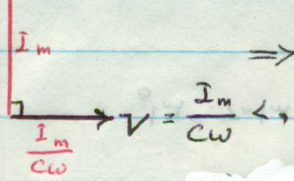 I_m ⇒
V = I_m/Cω <
I_m/Cω